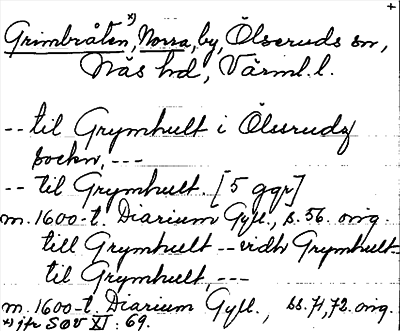 +
Grimbråten, *) Norra, by, Ölseruds sn,
Näs hd, Värml. l.
-- til Grymhult i Ölserudz
sockn, ---
-- til Grymhult. [5 ggr]
m. 1600-t. Diarium Gyll., s. 56. orig.
till Grymhult -- vidh Grymhult-
til Grymhult, ---
m. 1600-t. Diarium Gyll., ss. 71, 72. orig.
*) jfr SOV XI: 69.